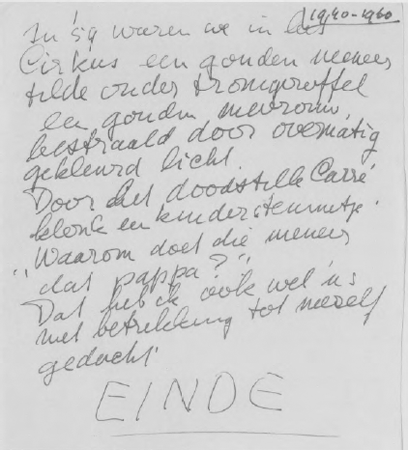 1940-1960
In '59 waren we in het
Cirkus een gouden meneer
tilde onder tromgeroffel
een gouden mevrouw,
bestraald door overmatig
gekleurd licht.
Door het doodstille Carré
klonk een kinderstemmetje.
"Waarom doet die meneer
dat pappa?"
Dat heb ik ook wel 'ns
met betrekking tot mezelf
gedacht.
EINDE